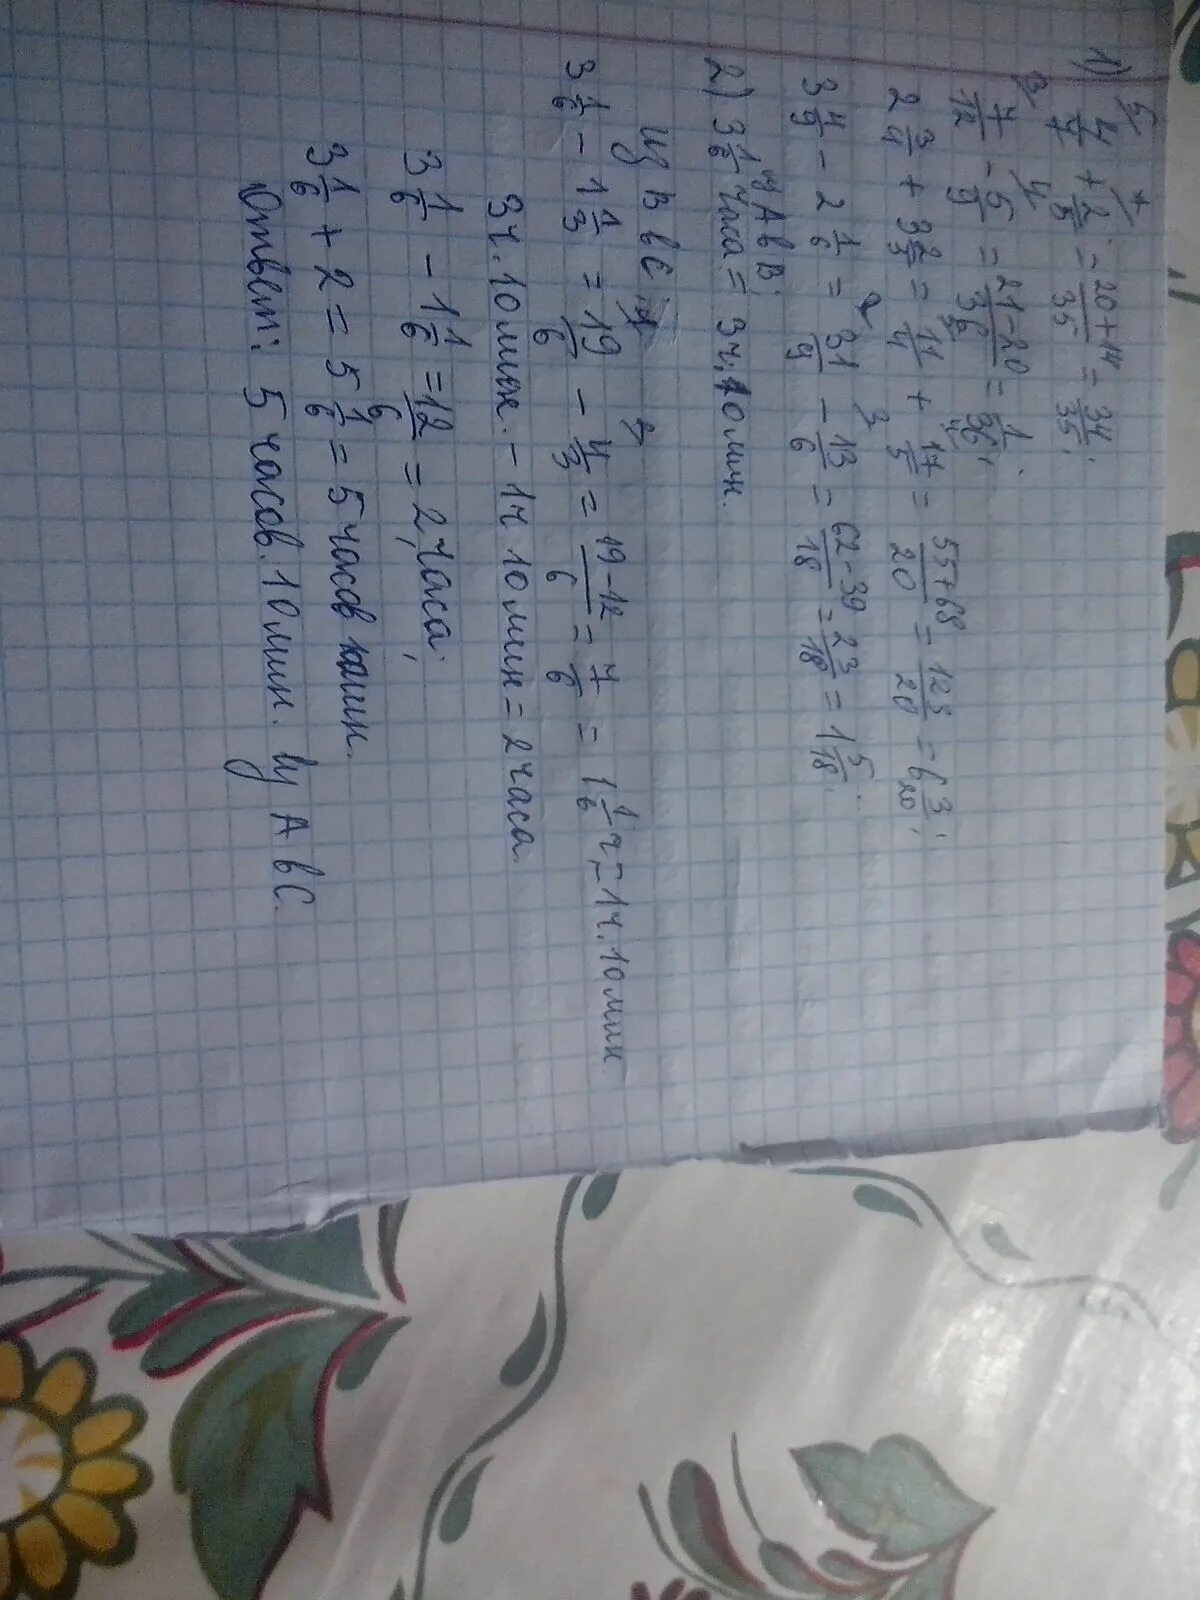 1) 4/7 + 2/5 = 20+14/35 = 34/35;
7/12 - 5/9 = 21-20/36 = 1/36;
2 3/4 + 3 2/3 = 11/4 + 17/5 = 55+68/20 = 123/20 = 6 3/20;
3 4/9 - 2 1/6 = 31/9 - 13/6 = 62-39/18 = 23/18 = 1 5/18;
из А в В:
2) 3 1/6 часа = 3ч. 10мин.
Из В в С
3 1/6 - 1 1/3 = 19/6 - 4/3 = 19-12/6 = 7/6 = 1 1/6 ч = 1ч. 10мин
3ч. 10мин. - 1ч 10мин = 2часа.
3 1/6 - 1 1/6 = 12/6 = 2часа;
3 1/6 + 2 = 5 1/6 = 5часов мин.
Ответ: 5 часов. 10мин. Из А в С.